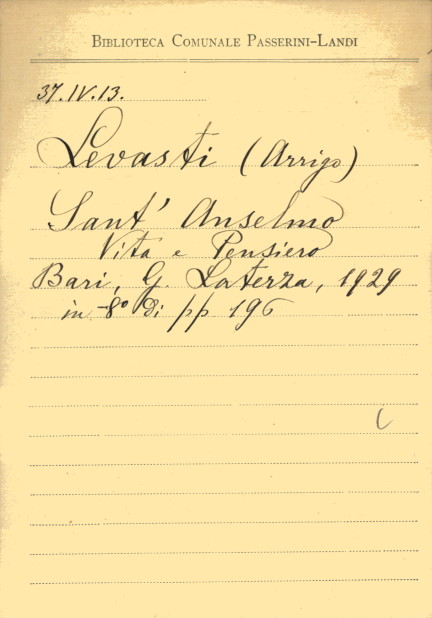 BIBLIOTECA COMUNALE PASSERINI-LANDI
37.IV.13.
Levasti (Arrigo)
Sant' Anselmo
Vita e Pensiero
Bari, G. Laterza, 1929
in -8° di pp 196